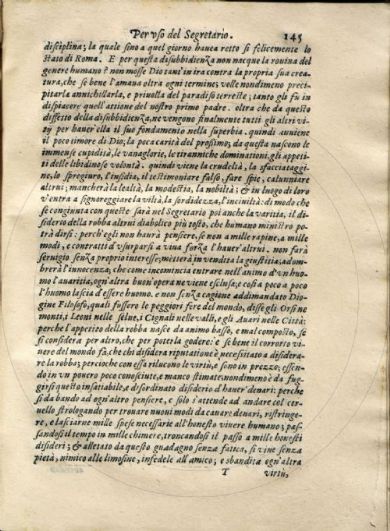 Per vso del Segretario. 145
disciplina; la quale sino a quel giorno hauea retto sì felicemente lo
stato di Roma. E per questa disubbidienza non nacque la rouina del
genere humano? non mosse Dio tant'in ira contra la propria sua crea-
tura, che se bene l'amaua oltra ogni termine; volle nondimeno preci-
pitarla annichillarla, e priualla del paradiso terreste; tanto gli fù in
dispiacere quell'attione del nostro primo padre. oltra che da questo
diffetto della disubbidienza, ne vengono finalmente tutti gli altri vi-
tij per hauer ella il suo fondamento nella superbia. quindi auuiene
il poco timore di Dio; la poca carità del prossimo; da questa nascono le
immense cupidità, le vanaglorie, le tiranniche dominationi, gli appeti-
ti delle libidinose volontà. quindi viene la crudeltà, la sfacciataggi-
ne, lo spregiuro, l'insidia, il testimoniare falso, fare spie, calunniare
altrui; mancherà la lealtà, la modestia, la nobiltà; & in luogo di loro
v'entra a signoreggiare la viltà, la sordidezza, l'inciuiltà: di modo che
se congiunta con queste sarà nel Segretario poi anche la varitia, il di-
siderio della robba altrui diabolico più tosto, che humano ministro po-
trà dirsi: perche egli non haurà pensiere, se non a mille rapine, a mille
modi, e contratti d'vsurparsi a viua forza l'hauer'altrui. non farà
seruigio senza proprio interesse; metterà in vendita la giustitia; adom-
brerà l'innocenza; che come incomincia entrare nell'animo d'vn huo-
mo l'auaritia, ogn'altra buon'opera ne viene esclusa; e così a poco a poco
l'huomo lascia d'essere huomo. e non senza cagione addimandato Dio-
gine Filosofo, quali fussero le peggiori fere del mondo, disse gli Orsi ne
monti, i Leoni nelle selue, i Cignali nelle valli, e gli Auari nelle Città:
perche l'appetito della robba nasce da animo basso, e mal composto, se
si considera per altro, che per poterla godere: e se bene il corrotto vi-
uere del mondo fà, che chi disidera riputatione è necessitato a disidera-
re la robba; perciocche con essa rilucono le virtù, e sono in prezzo; essen-
do in vn pouero poco conosciute, e manco stimate: nondimeno è da fug-
girsi questo insatiabile, e disordinato disiderio d'hauer denari: perche
si dà bando ad ogn'altro pensiere, e solo s'attende ad andare col cer-
uello strologando per trouare nuoui modi da cauare denari, ristringe-
re, e lasciar vne mille spese necessarie all'honesto viuere humano; pas-
sandosi il tempo in mille chimere, troncandosi il passo a mille honesti
disideri; & allettato da questo guadagno senza fatica, si viue senza
pietà, nimico alle limosine, infedele all'amico; e sbandita ogn'altra
T virtù,